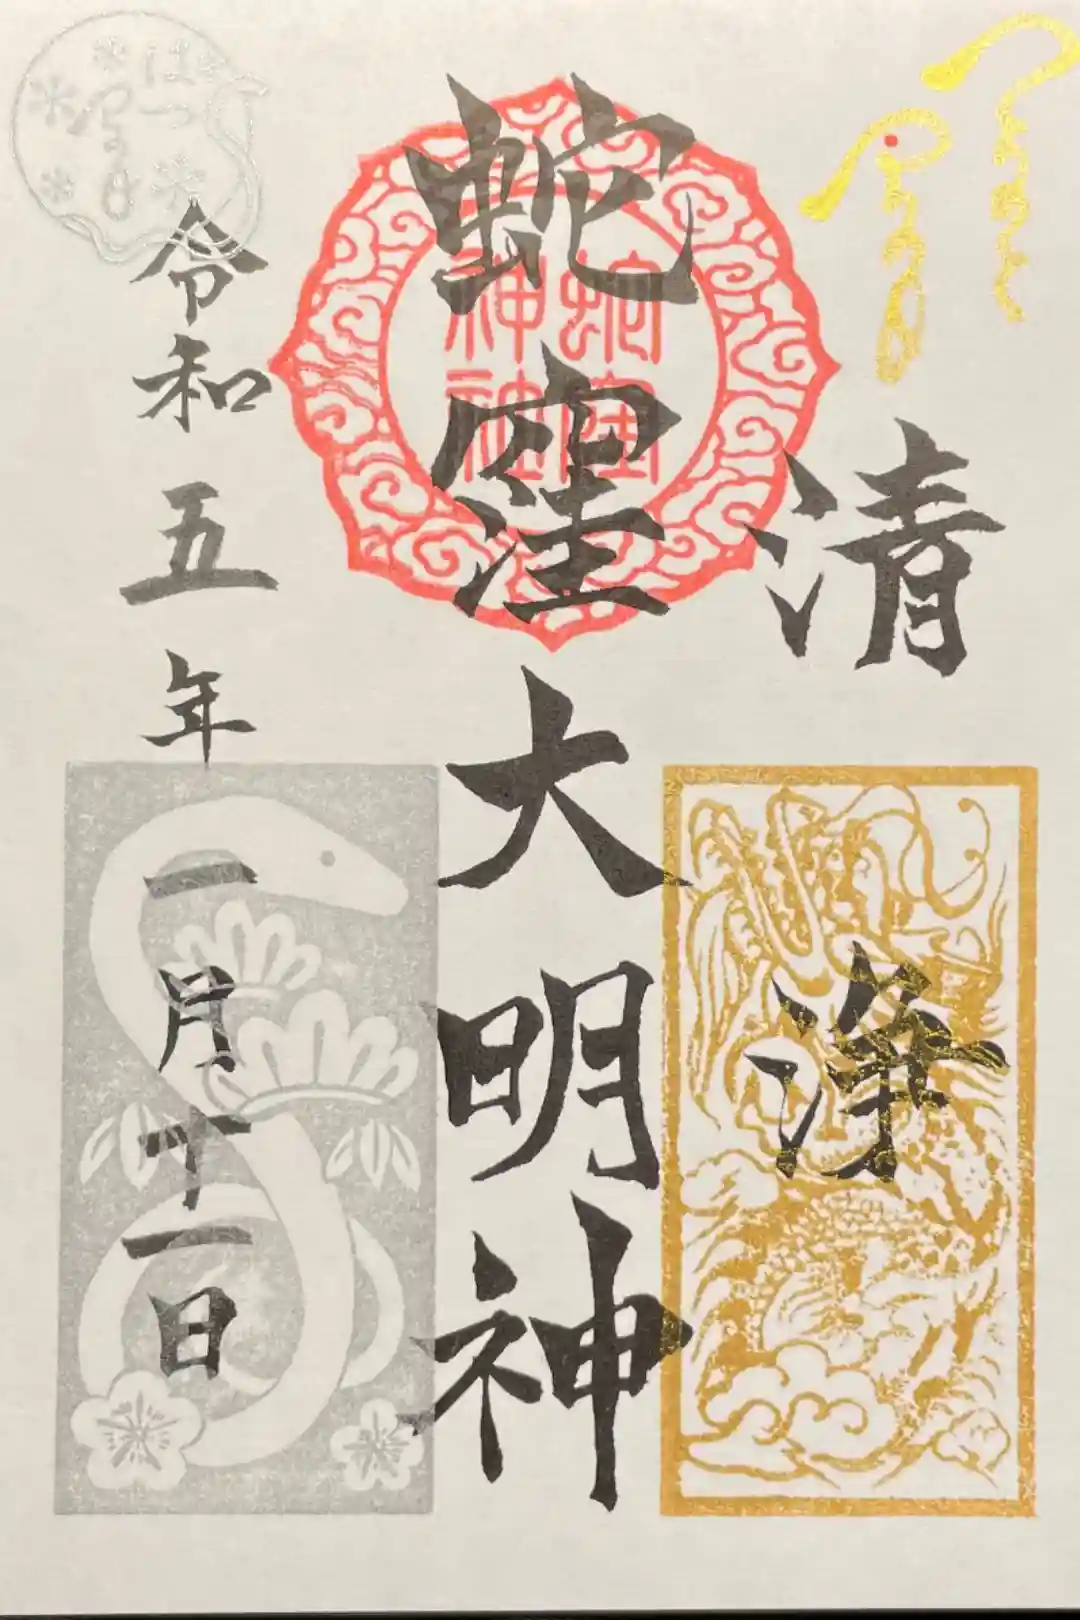 清浄
蛇窪大明神
蛇窪
神社
令和五年一月十一日